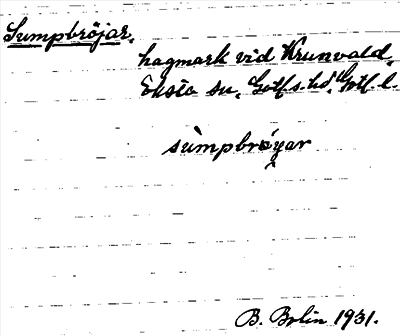 Sumpbröjar,
hagmark vid Krunvald,
Eksta sn, Gotl. s. hd, Gotl. l.
sùmpbrøyar
B. Bolin 1931.